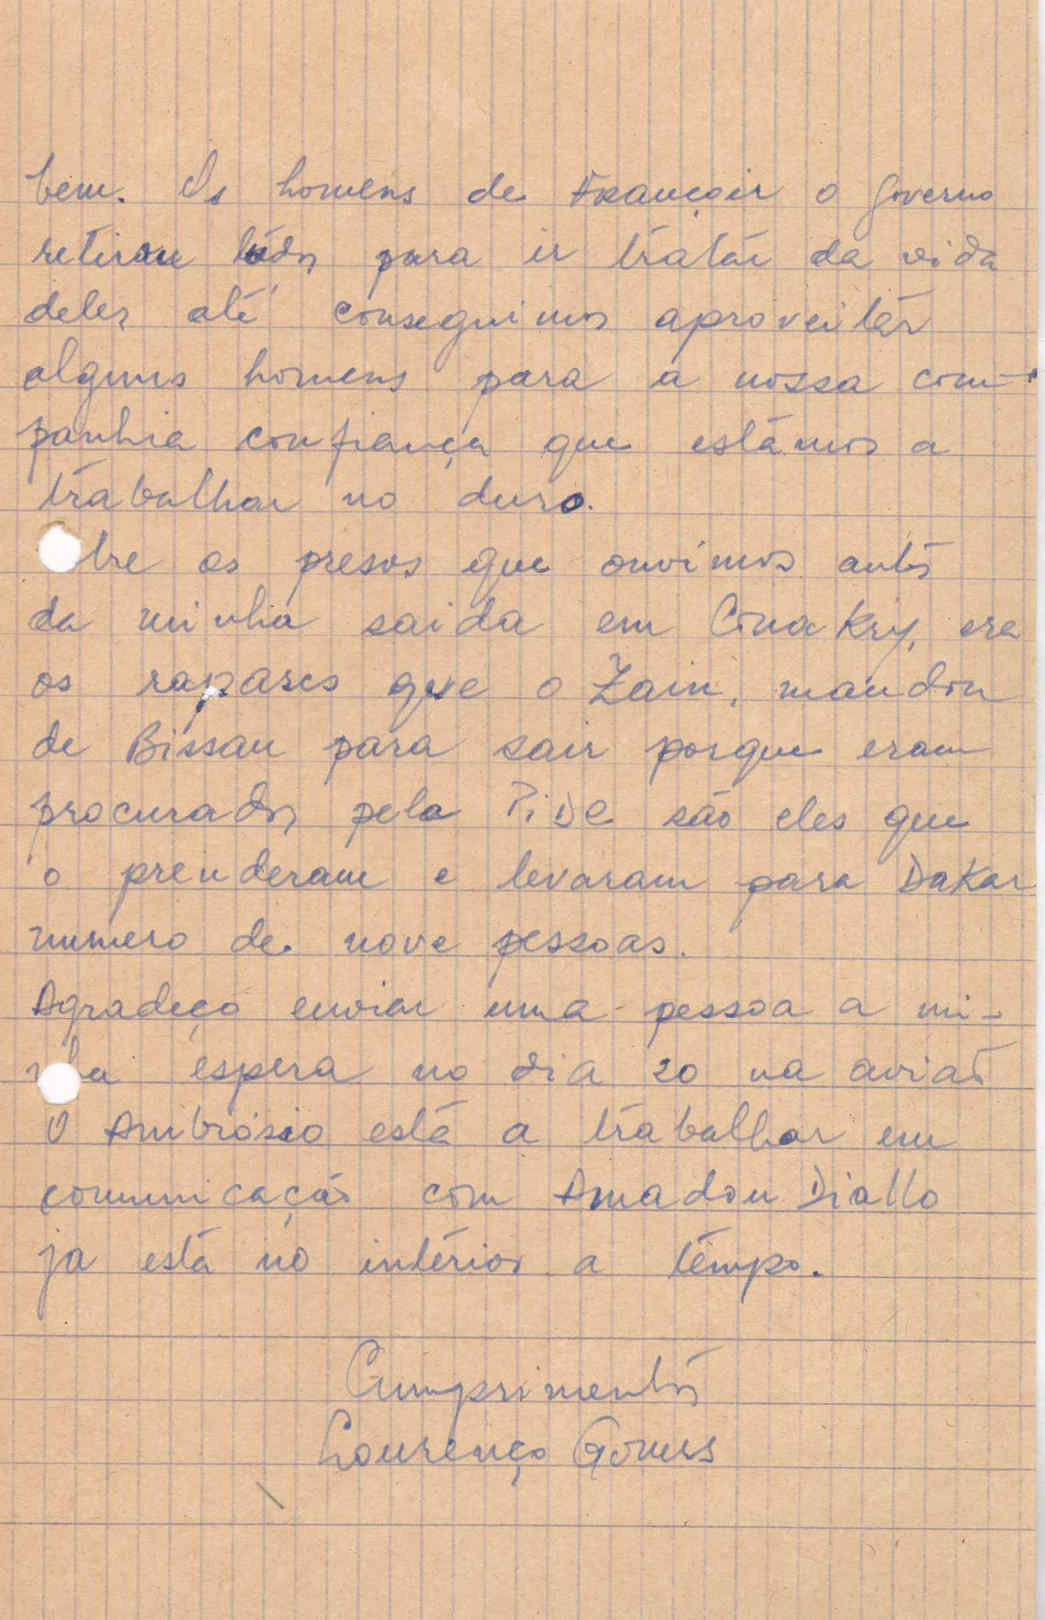 bem. Os homens de Françoir o Governo
retirou todos para ir tratar da vida
deles até conseguimos aproveitar
alguns homens para a nossa com-
panhia confiança que estámos a
trabalhar no duro.
bre os presos que ouvimos antes
da minha saida em Conakry, era
os rapases que o Zain, mandou
de Bissau para sair porque eram
procurados pela PiDe são eles que
o prenderam e levaram para Dakar
numero de nove pessoas.
Agradeço enviar uma pessoa a mi-
nha espera no dia 20 na avião
O Ambrósio está a trabalhar em
comunicação com Amadou Diallo
ja está no intérior a tempo.
Cumprimentos
Lourenço Gomes